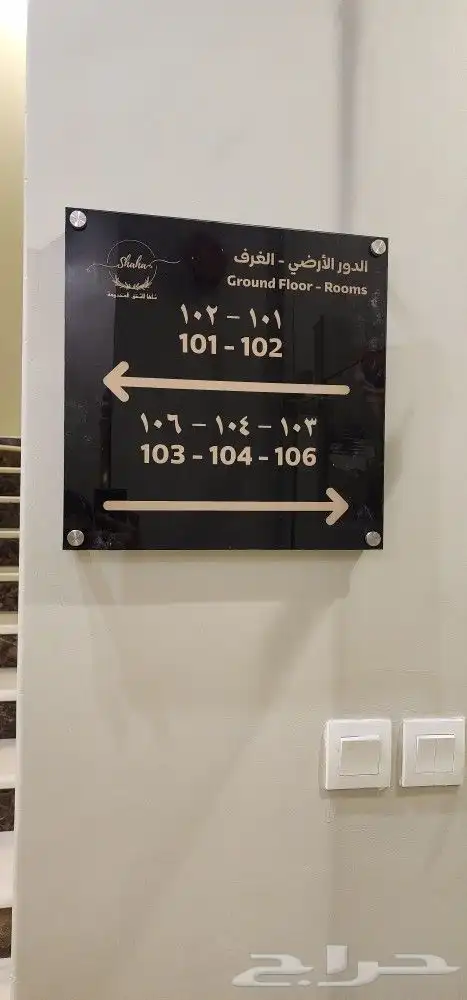 Shaha
شها للشقق المخدومة
الدور الأرضي - الغرف
Ground Floor - Rooms
١٠١ - ١٠٢
101 - 102
١٠٣ - ١٠٤ - ١٠٦
103 - 104 - 106
حراج